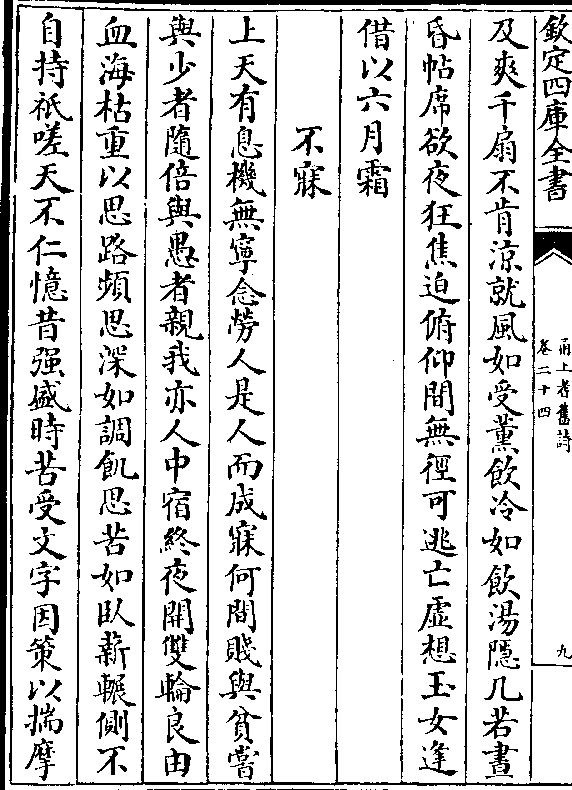 欽定四庫全書
甬上耆舊詩
卷二十四
九
及爽千扇不肯涼就風如受薰飲冷如飲湯隱几若晝
昏帖席欲夜狂焦迫俯仰間無徑可逃亡虛想玉女逢
借以六月霜
不寐
上天有息機無寧念勞人是人而成寐何問賤與貧嘗
與少者隨倍與愚者親我亦人中宿終夜開雙輪良由
血海枯重以思路頻思深如調飢思苦如臥薪輾側不
自持祇嗟天不仁憶昔强盛時苦受文字因策以揣摩